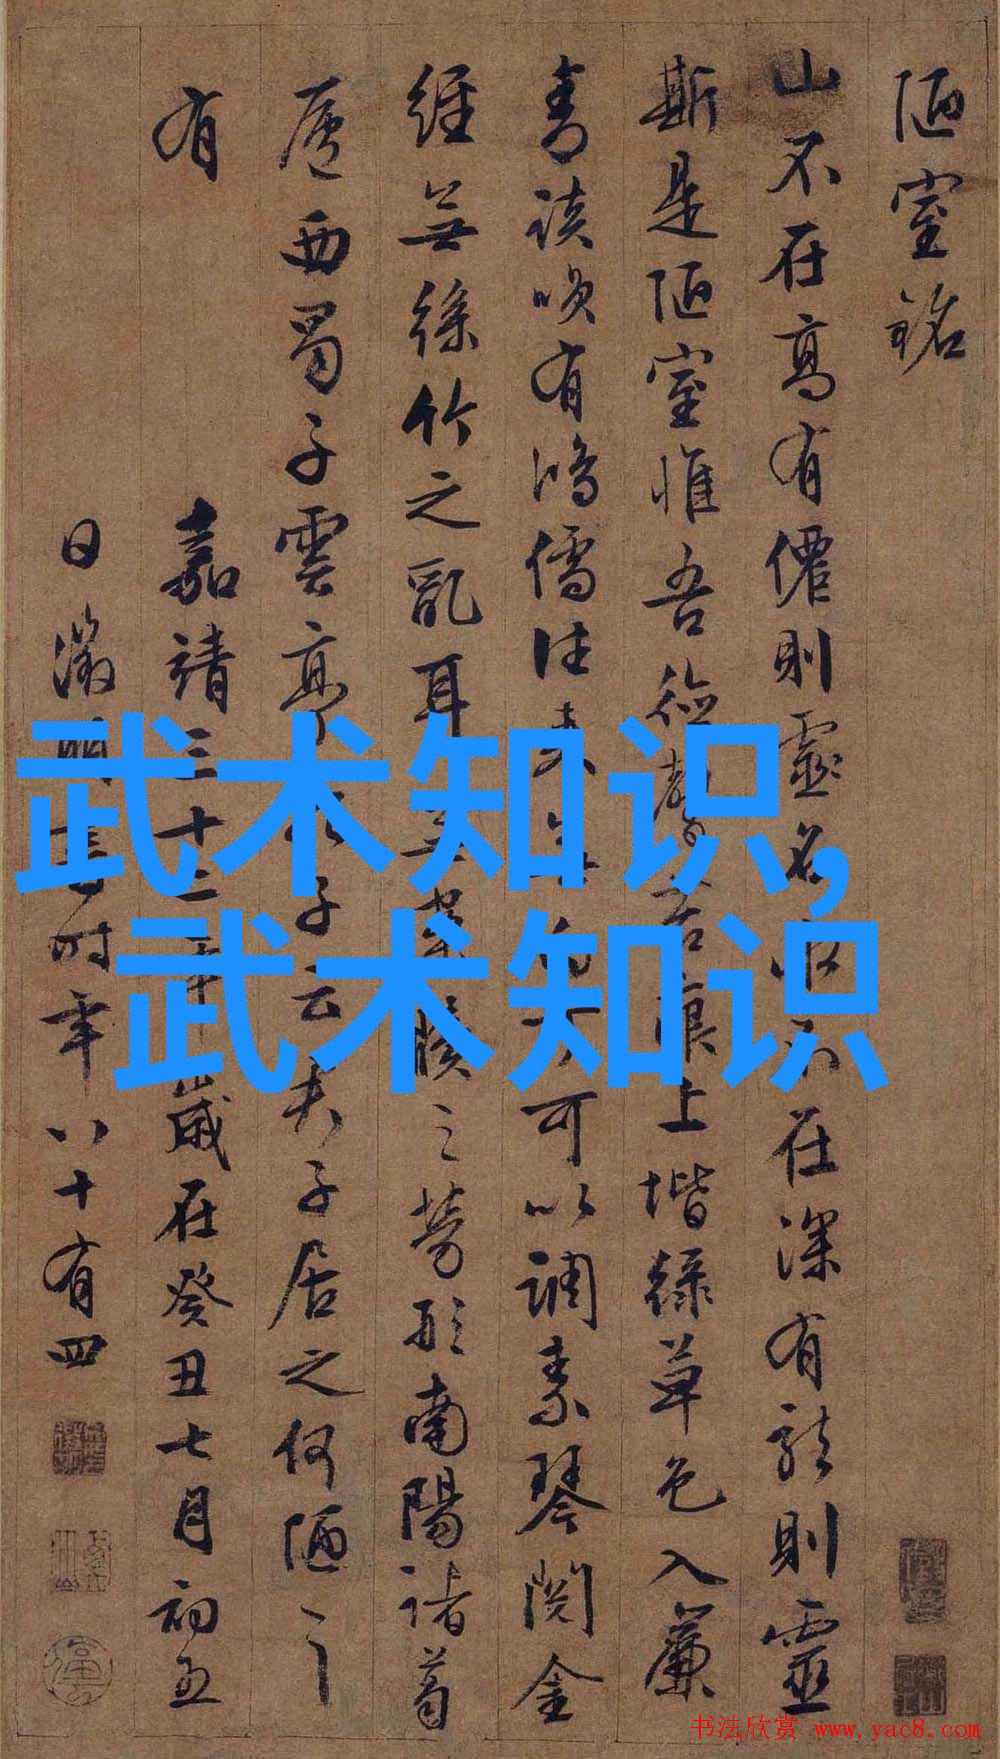 陋室銘
山不在高有僊則靈名水不在深有龍則靈
斯是陋室惟吾德馨苔痕上堦綠草色入簾
青談唉有鴻儒往來無白丁可以調素琴閱金
經無絲竹之亂耳無案牘之勞形南陽諸葛
廬西蜀子雲亭孔子云夫子居之何陋之
有
嘉靖三十二年歲在癸丑七月初五
日徵明書時年八十有四
武术知识,
武术知识
书法欣赏 www.yac8.com